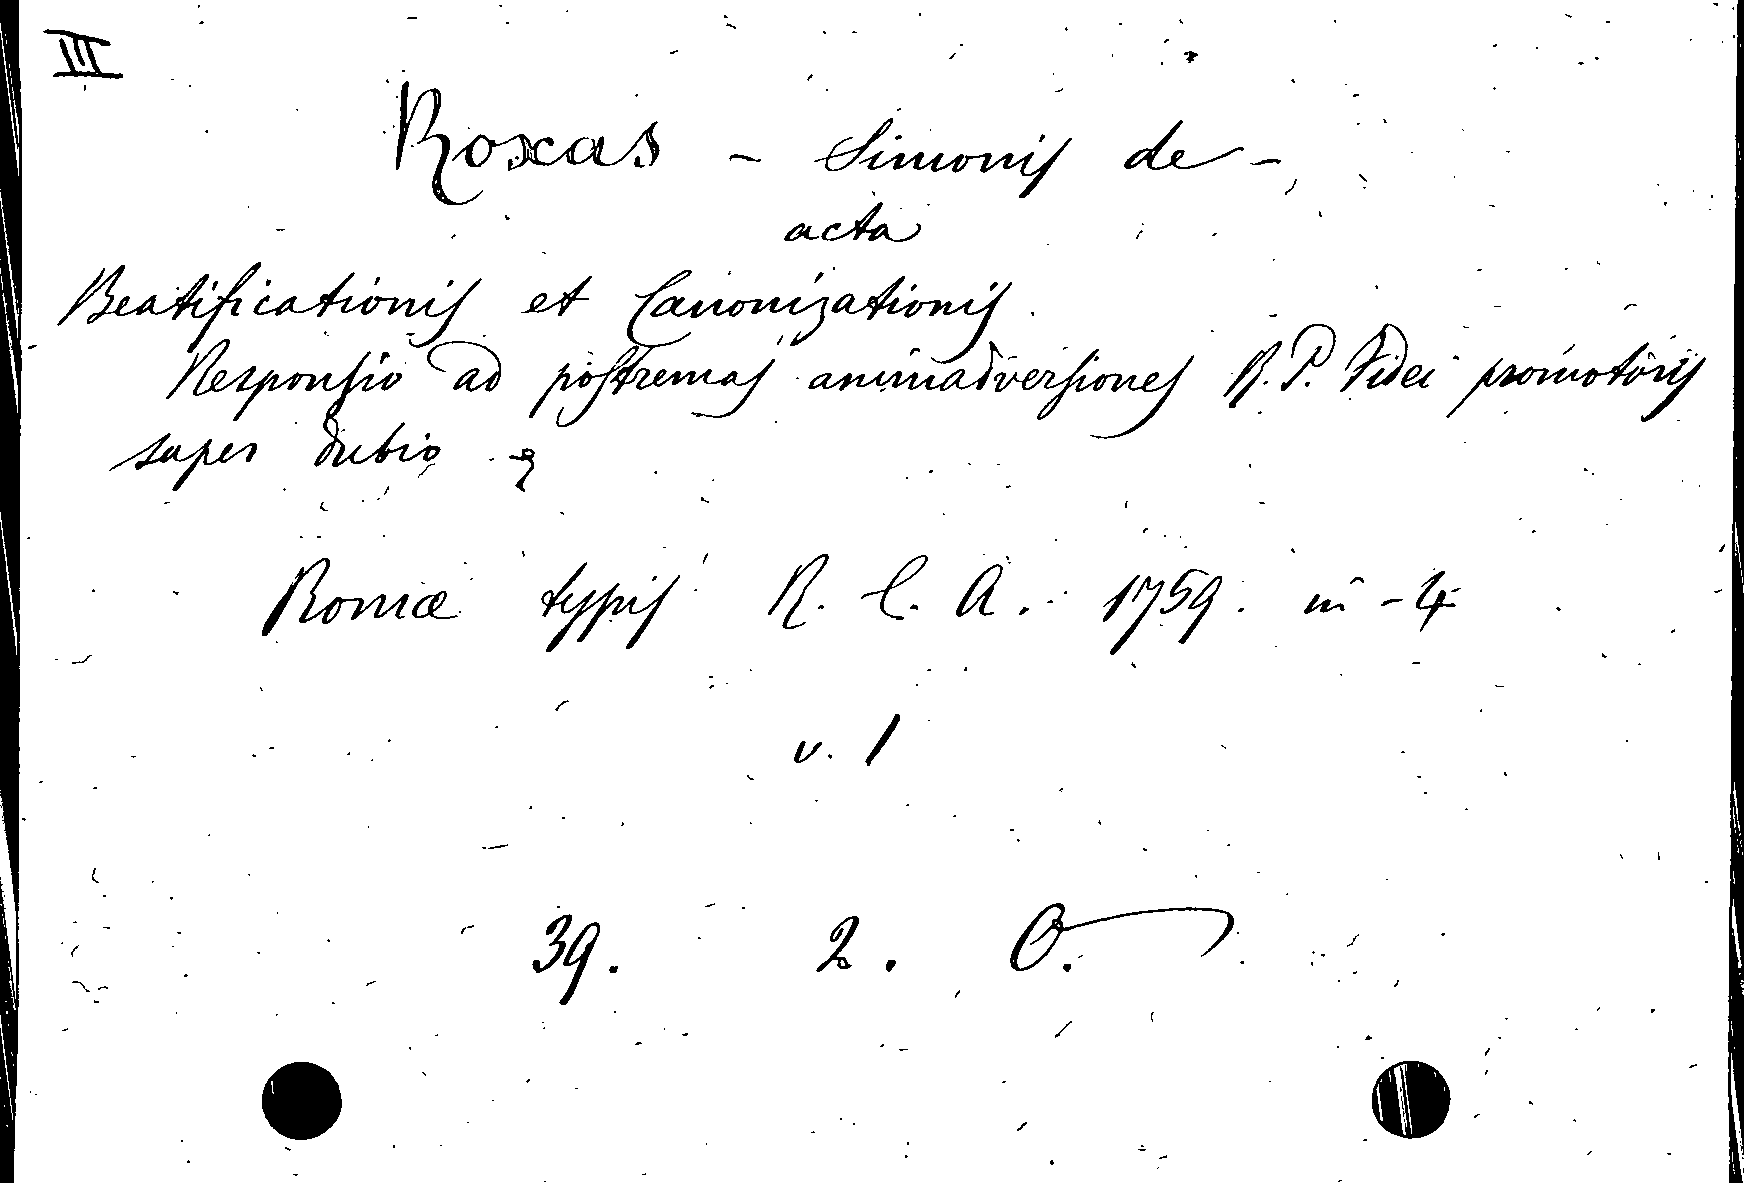 III
Roxas - Simonis de -
acta
Beatificationis et Canonizationis
Responsio ad postremas animadversiones R. P. Fidei promotoris
super dubio
Romæ typis R. C. A. 1759. in - 4
v. 1
39. 2. O.